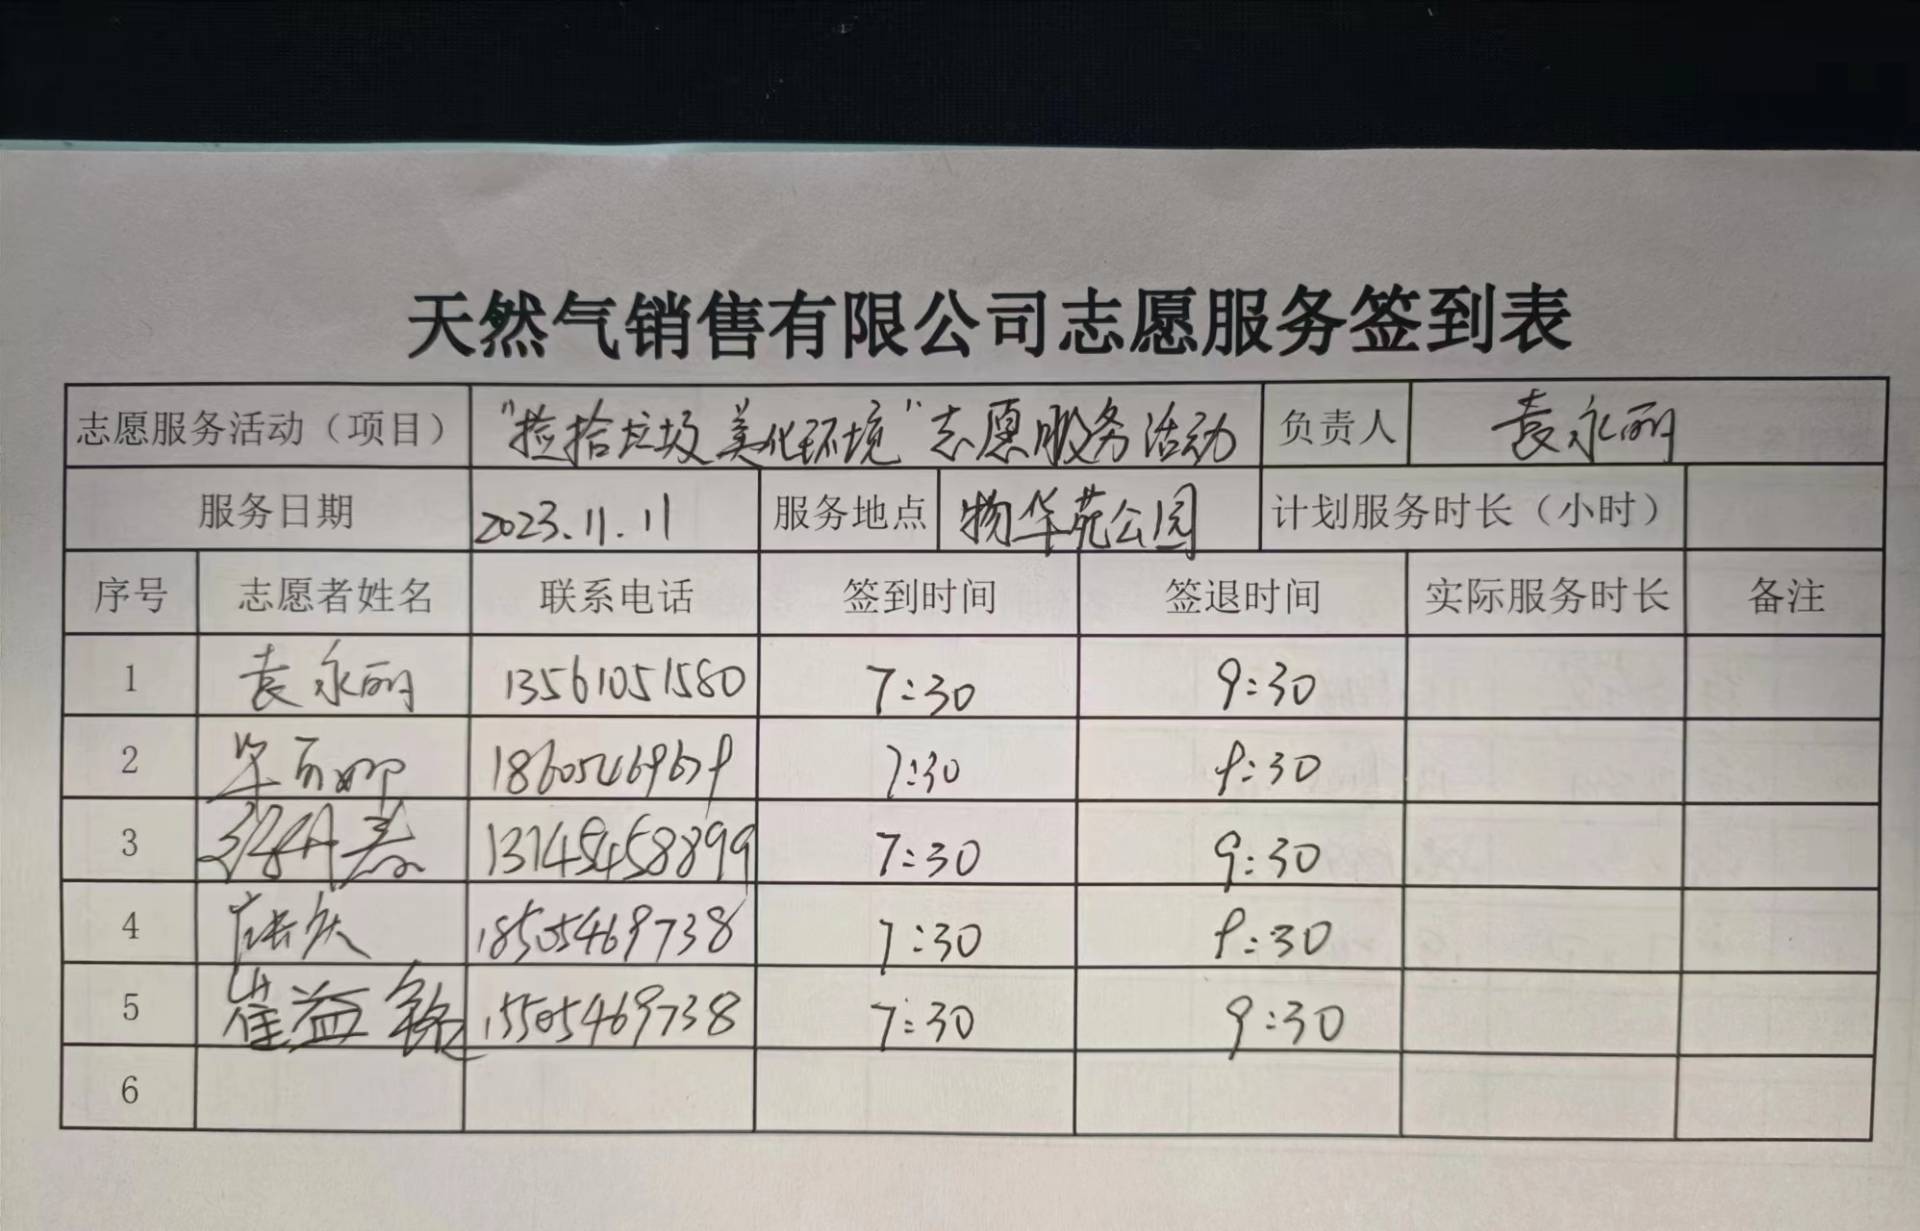 天然气销售有限公司志愿服务签到表
志愿服务活动（项目） "捡拾垃圾 美化环境"志愿服务活动 负责人 袁永丽
服务日期 2023.11.11 服务地点 物华苑公园 计划服务时长（小时）
序号 志愿者姓名 联系电话 签到时间 签退时间 实际服务时长 备注
1 袁永丽 13561051580 7:30 9:30
2 7:30 9:30
3 13145458899 7:30 9:30
4 18505469738 7:30 9:30
5 崔益铭 15505469738 7:30 9:30
6